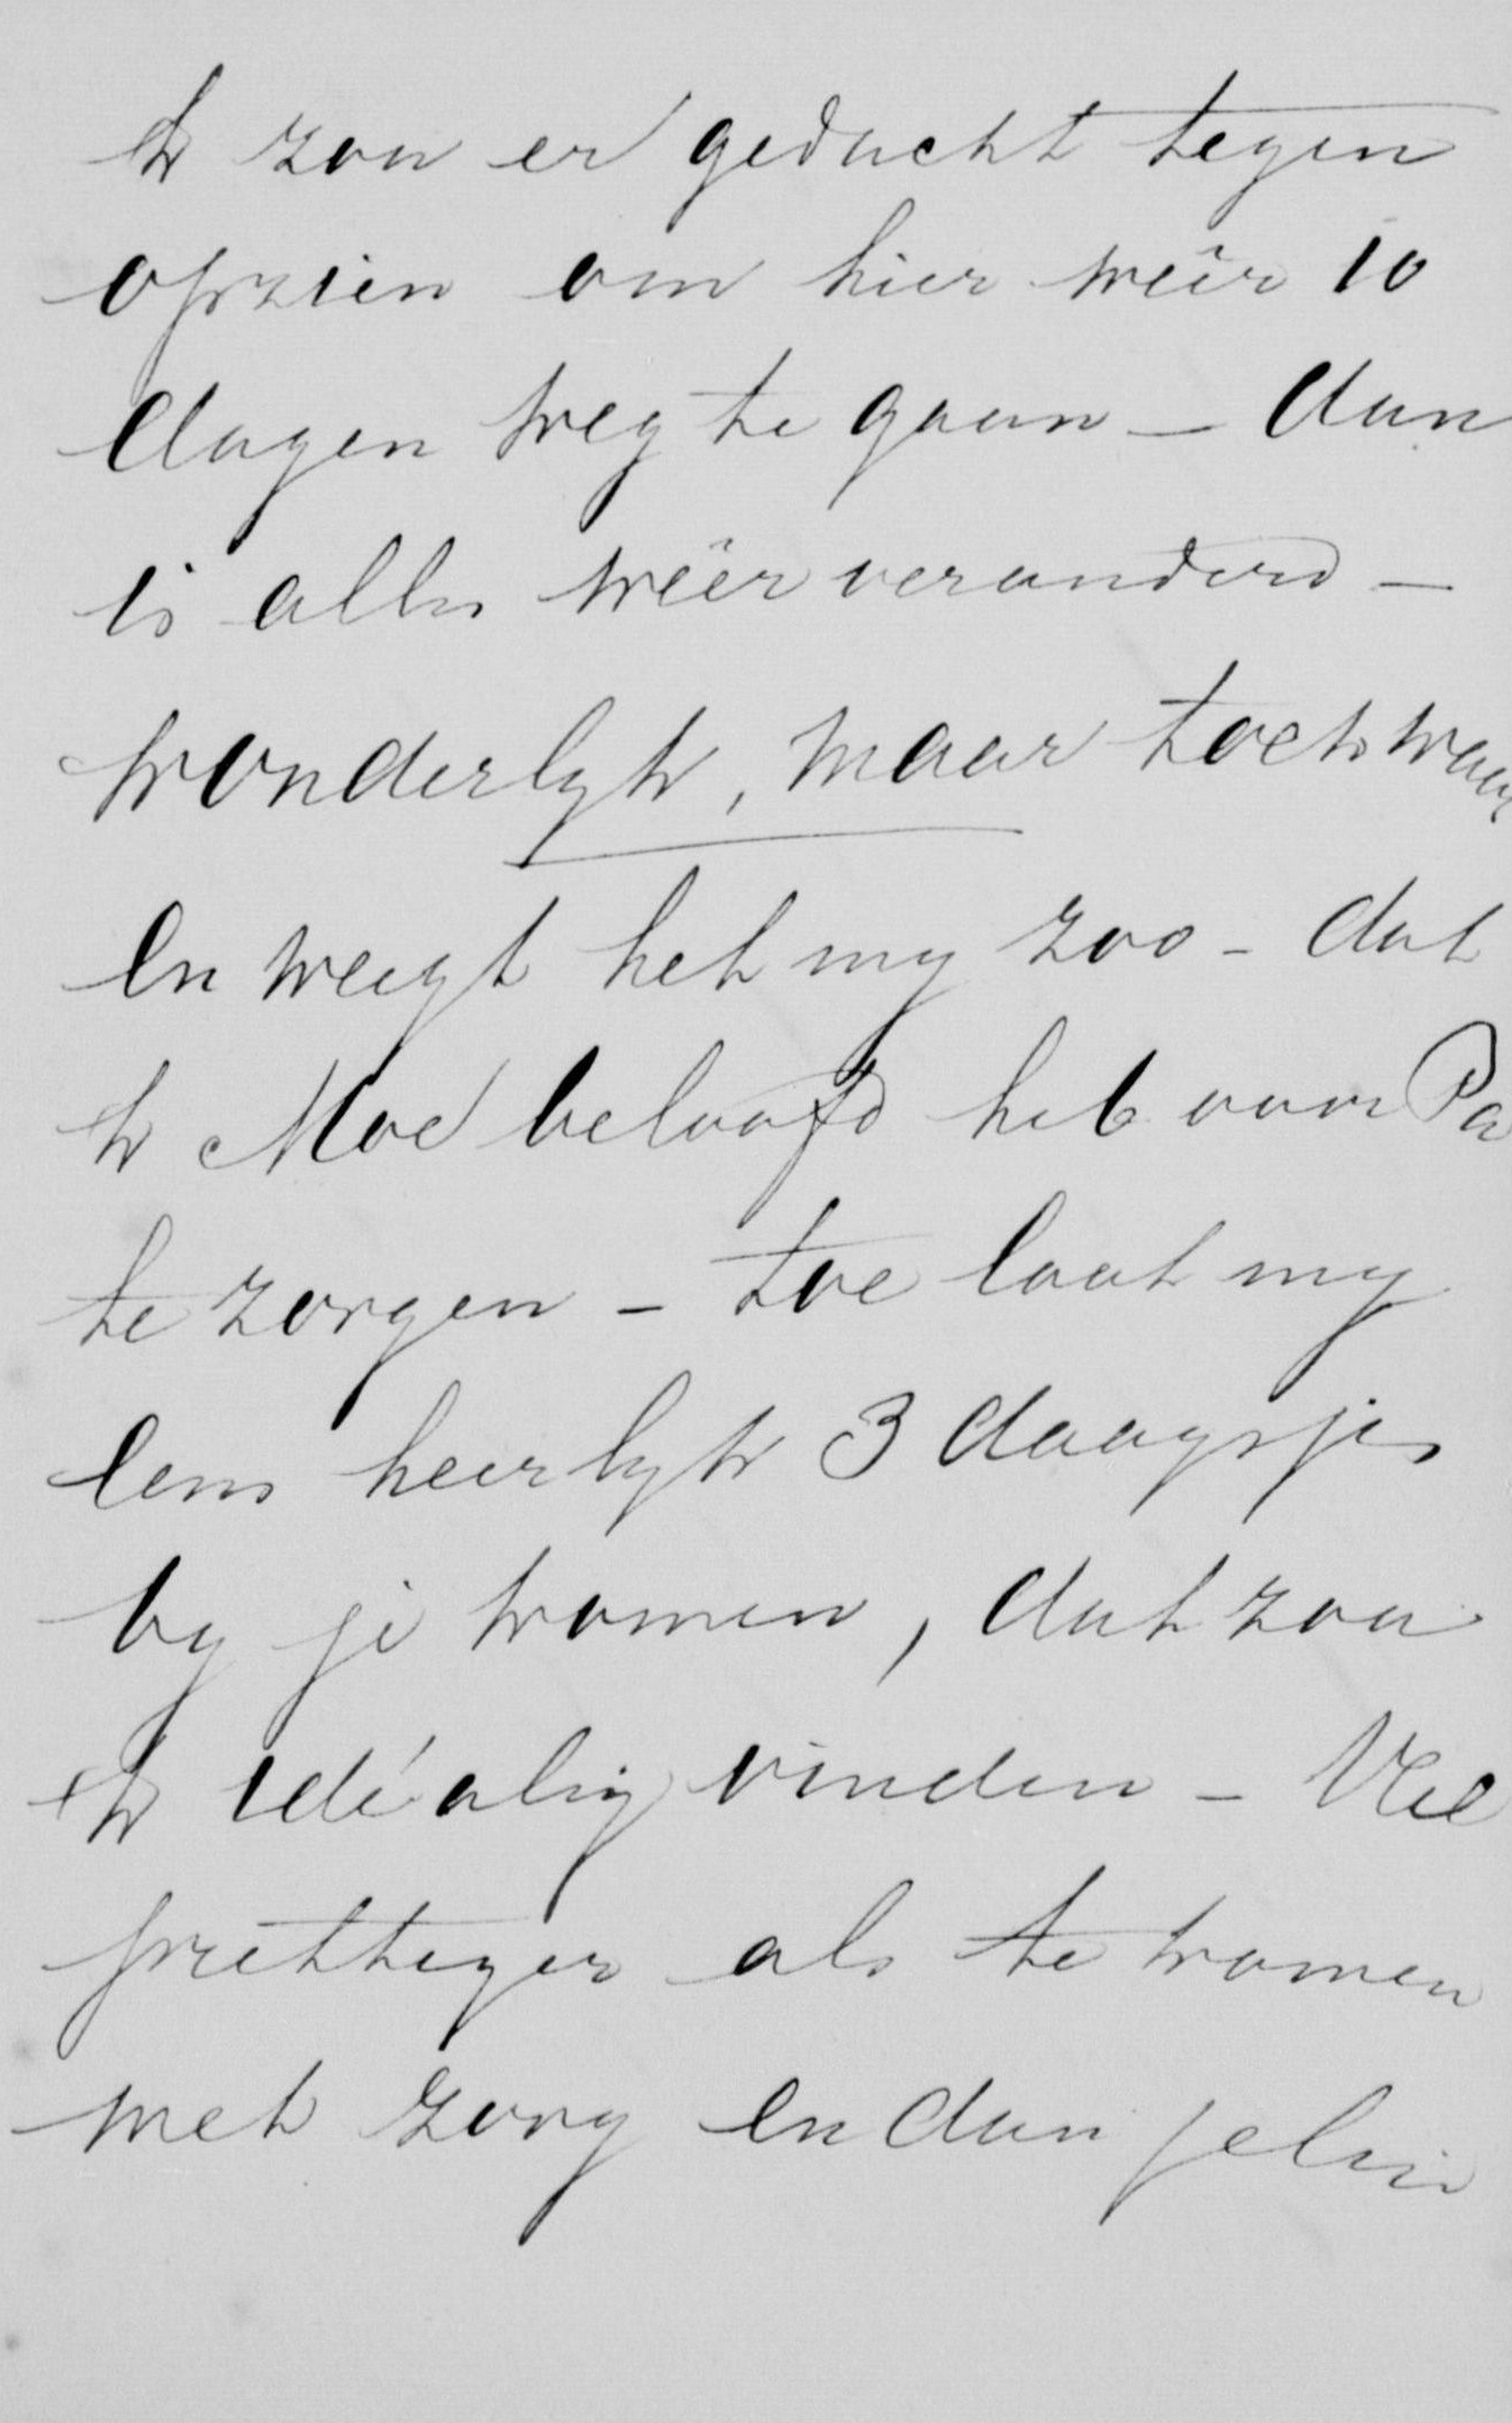 Ik zou er geducht tegen
opzien om hier weêr 10
dagen weg te gaan – dan
is alles weêr veranderd –
wonderlyk, maar toch waar
en weegt het my zoo – dat
ik Moe beloofd heb voor Pa
te zorgen – toe laat my
eens heerlyk 3 daagsjes
by je komen, dat zou
ik idéalig vinden – Veel
prettiger als te komen
met zorg en dan